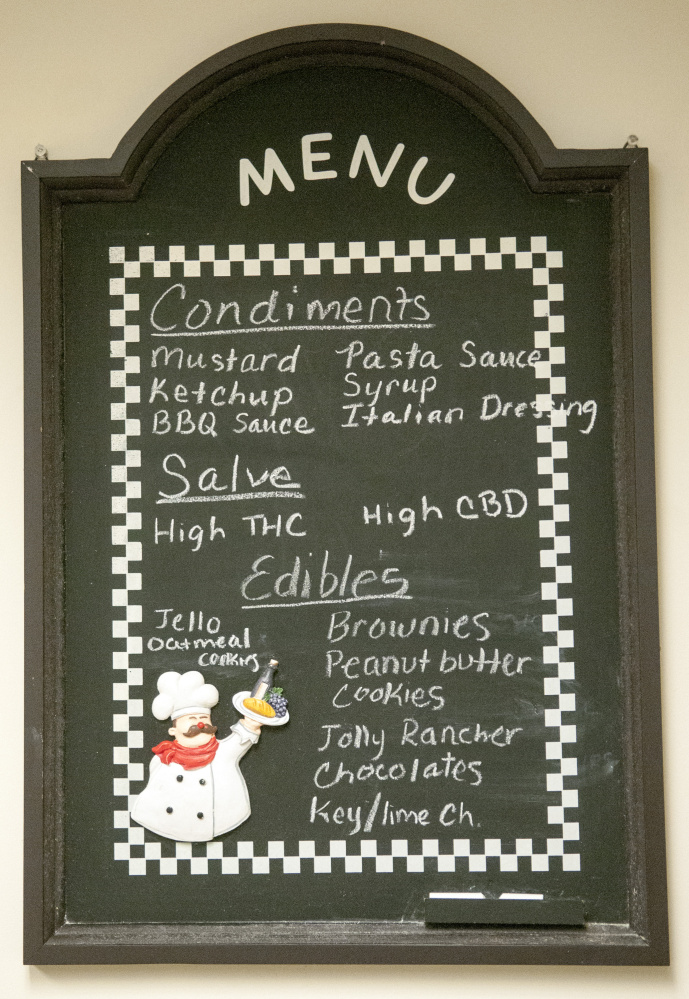 MENU
Condiments
Mustard
Ketchup
BBQ Sauce
Pasta Sauce
Syrup
Italian Dressing
Salve
High THC
High CBD
Edibles
Jello
Oatmeal
cookies
Brownies
Peanut butter
Cookies
Jolly Rancher
Chocolates
Key/lime Ch.